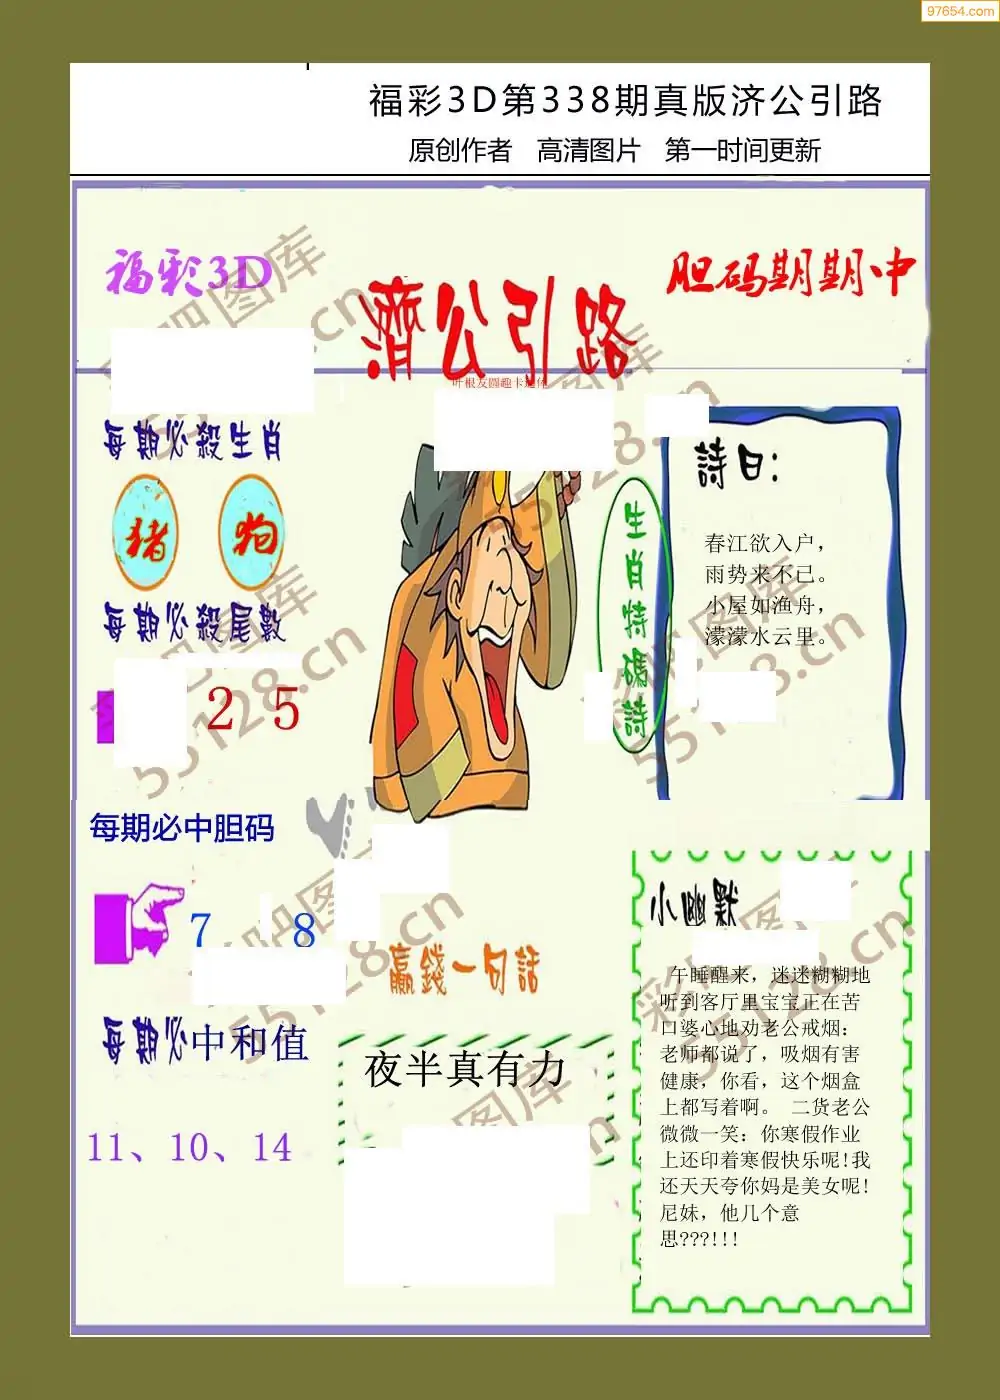 97654.com
福彩3D第338期真版济公引路
原创作者 高清图片 第一时间更新
福彩3D
濟公引路
胆码期期中
叶根友圆趣卡通体
每期必殺生肖
猪 狗
每期必殺尾數
2 5
每期必中胆码
7 8
每期必中和值
11、10、14
生肖特碼詩
詩曰：
春江欲入户，
雨势来不已。
小屋如渔舟，
濛濛水云里。
赢錢一句話
夜半真有力
小幽默
午睡醒来，迷迷糊糊地
听到客厅里宝宝正在苦
口婆心地劝老公戒烟：
老师都说了，吸烟有害
健康，你看，这个烟盒
上都写着啊。 二货老公
微微一笑：你寒假作业
上还印着寒假快乐呢!我
还天天夸你妈是美女呢!
尼妹，他几个意
思???!!!
彩吧图库
55128.cn
彩吧图库
55128.cn
彩吧图库
55128.cn